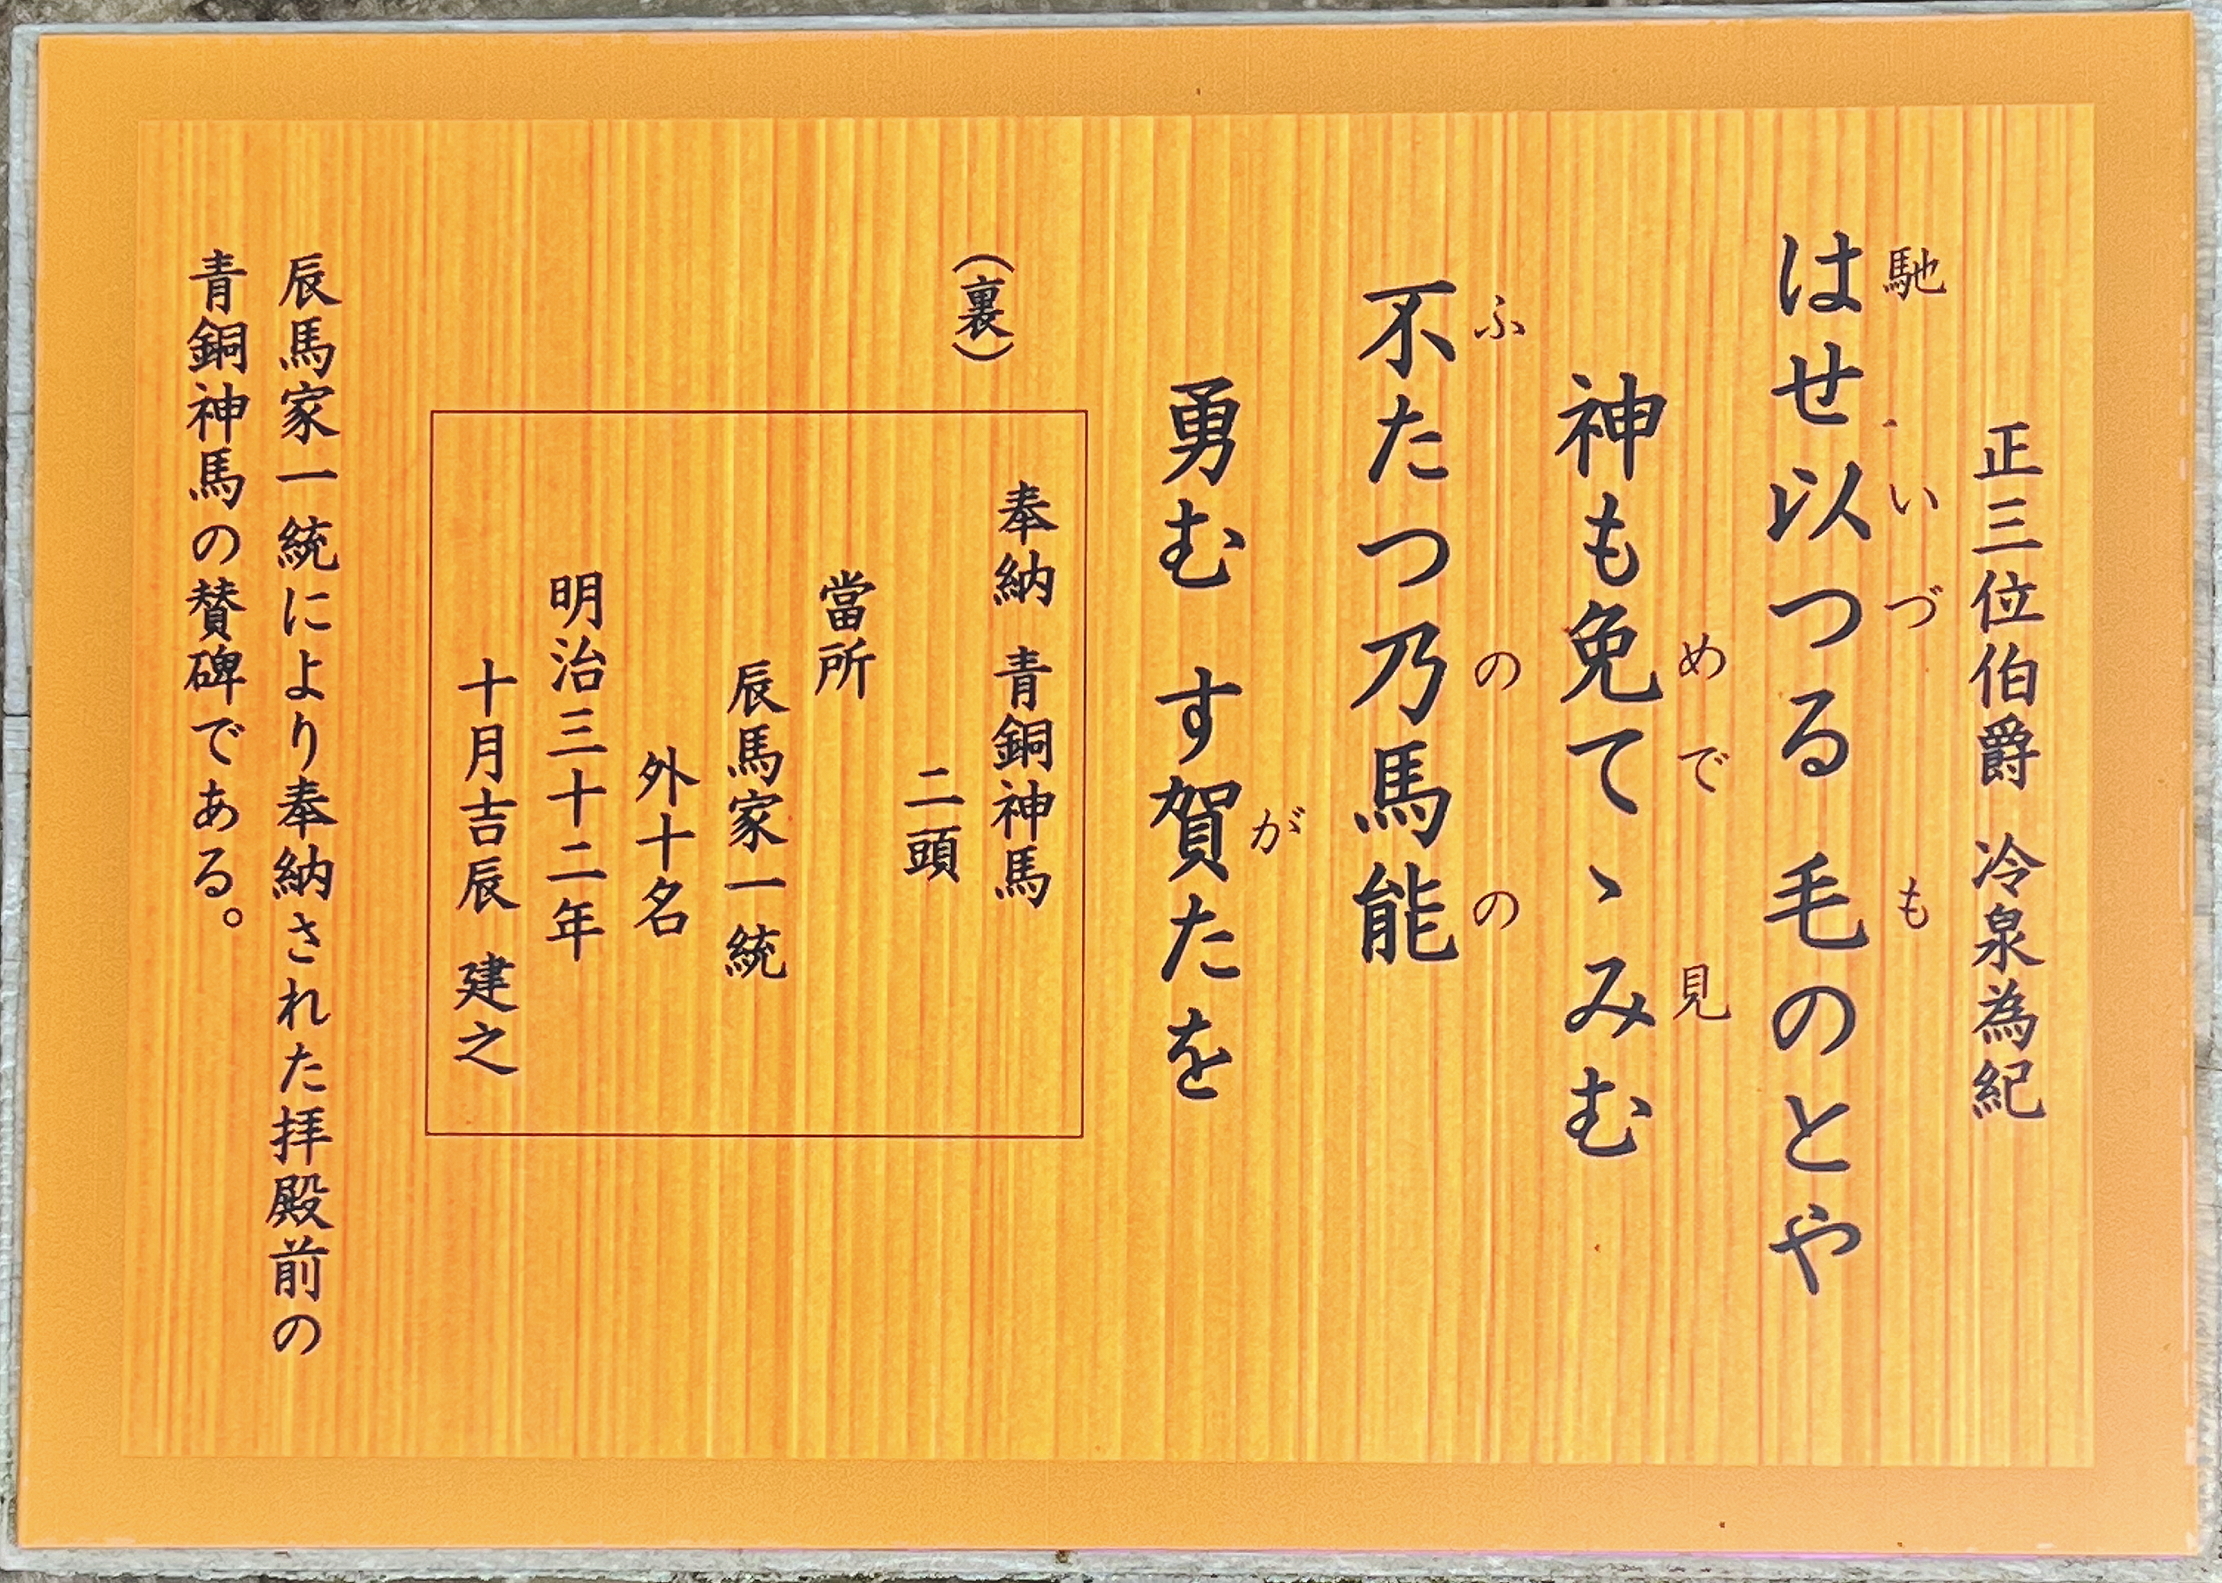 正三位伯爵 冷泉為紀
馳 い づ も
はせ以つる毛のとや
め で 見
神も免てゝみむ
ふ の の
不たつ乃馬能
が
勇む す賀たを
(裏)
奉納 青銅神馬
二頭
當所
辰馬家一統
外十名
明治三十二年
十月吉辰 建之
辰馬家一統により奉納された拝殿前の
青銅神馬の賛碑である。